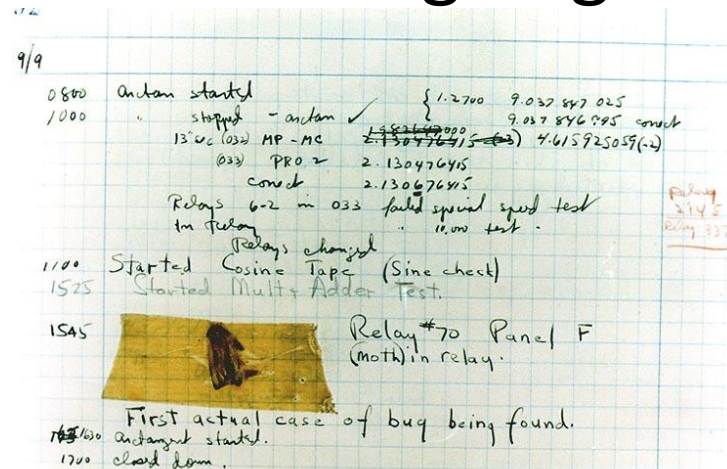 9/9
0800 Antan started
1000 " stopped - antan ✓ { 1.2700 9.037 847 025
9.037 846 995 conect
13"uc (032) MP - MC 2.130476415 (-3) 4.615925059(-2)
(033) PRO 2 2.130476415
conect 2.130676415
Relays 6-2 in 033 failed special speed test
In Relay " 10,000 test.
Relays changed
1100 Started Cosine Tape (Sine check)
1525 Started Mult+ Adder Test.
1545 Relay #70 Panel F
(moth) in relay.
First actual case of bug being found.
1630 arctangent started.
1700 closed down.